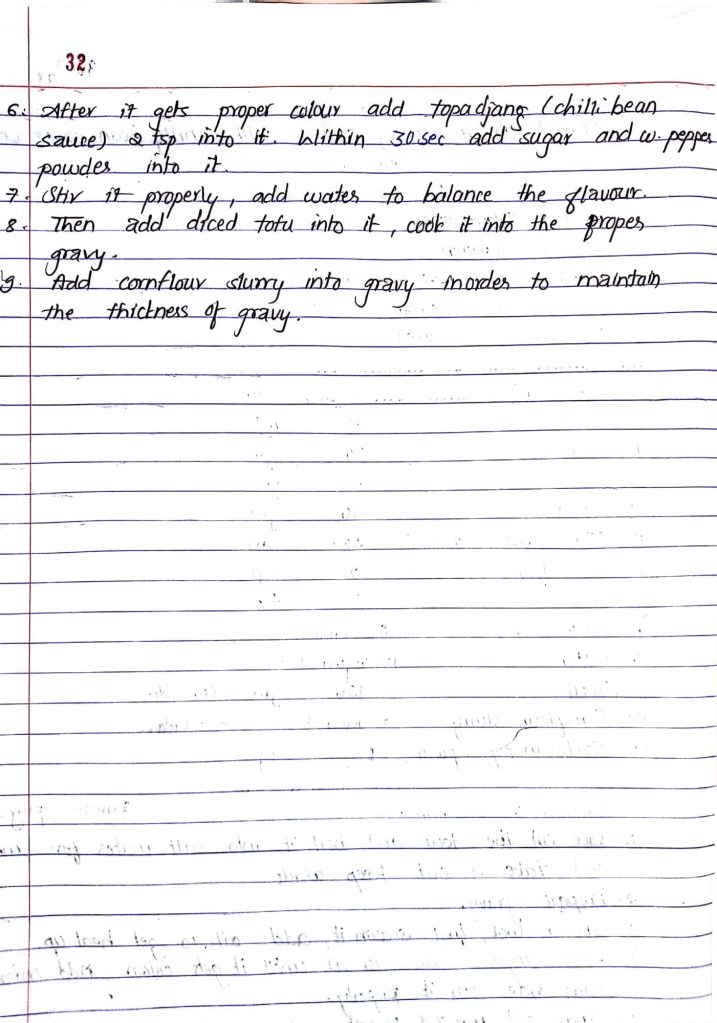 32
6. After it gets proper colour add topadjang (chilli bean
sauce) 2 tsp into it. Within 30 sec add sugar and w. pepper
powder into it.
7. Stir it properly, add water to balance the flavour.
8. Then add diced tofu into it, cook it into the proper
gravy.
9. Add cornflour slurry into gravy inorder to maintain
the thickness of gravy.